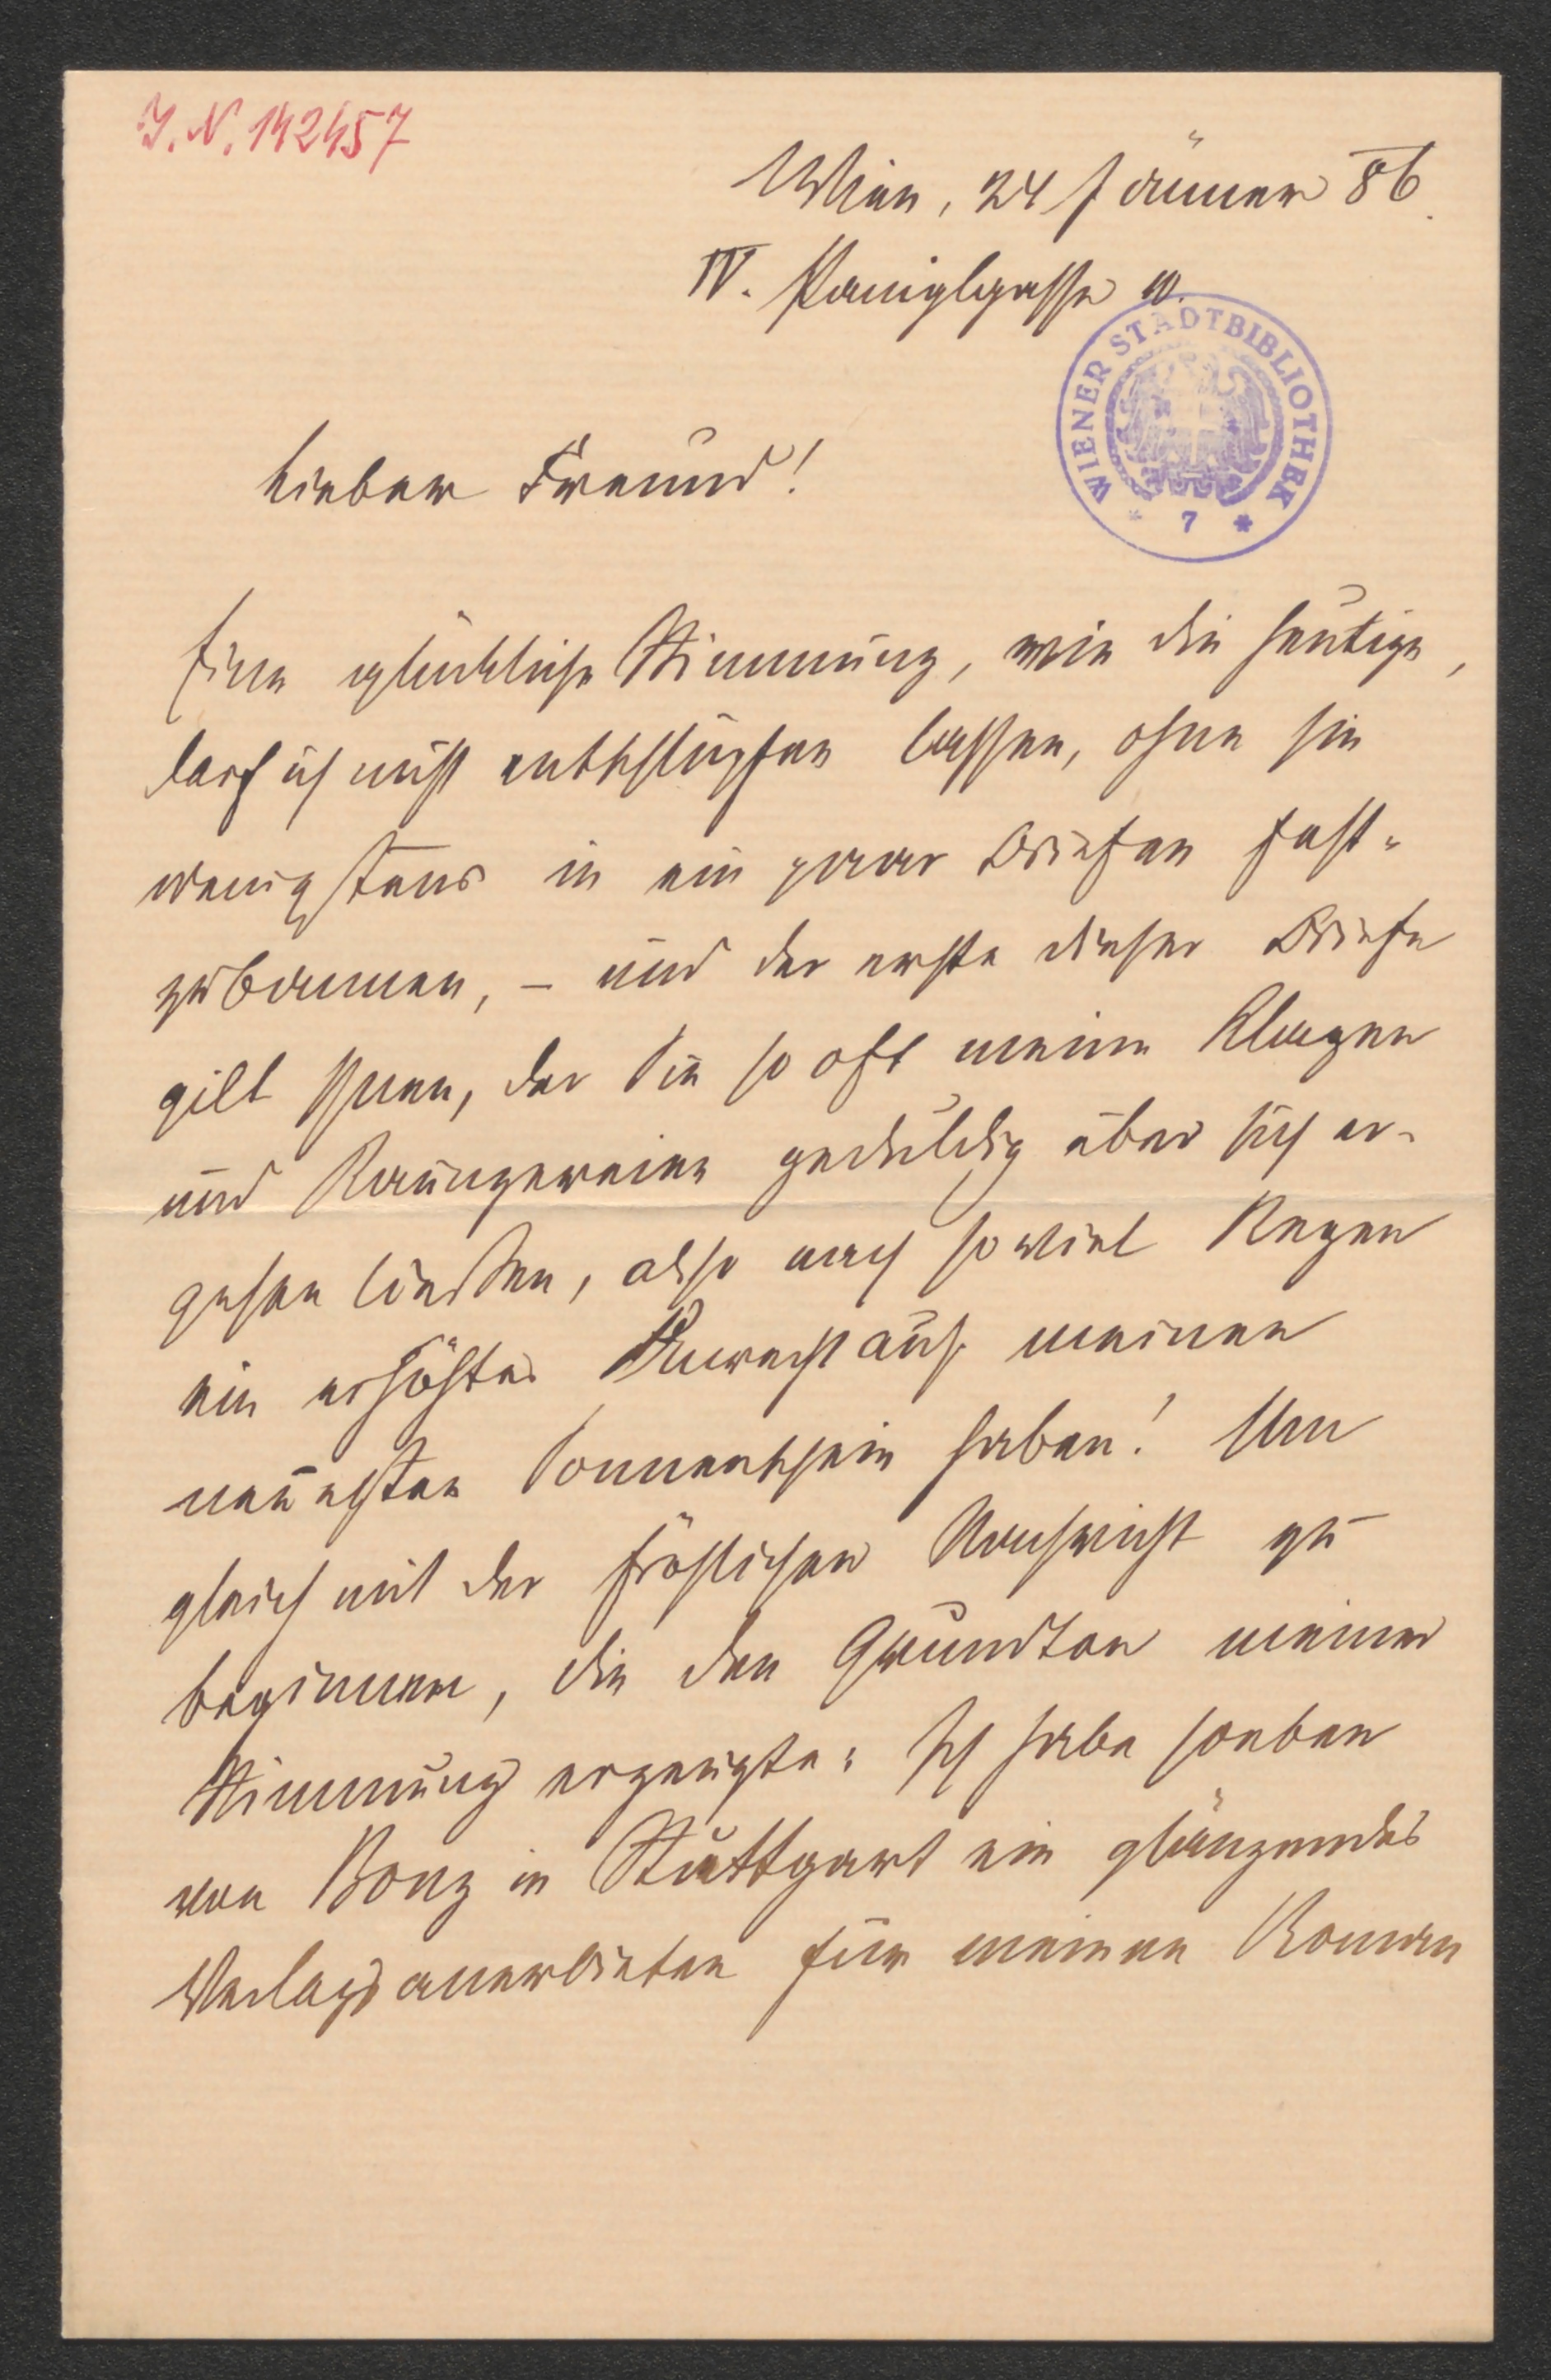 J. N. 142457
Wien, 24 Jänner 86.
IV. Paniglgasse
WIENER STADTBIBLIOTHEK
* 7 *
Lieber Freund!
Eine glückliche Stimmung, wie die heutige,
darf ich nicht entschlüpfen lassen, ohne sie
wenigstens in ein paar Briefen fest-
zubannen, – und der erste dieser Briefe
gilt Ihnen, der Sie so oft meine Klagen
und Raunzereien geduldig über sich er-
gehen ließen, also nach soviel Regen
ein erhöhtes Anrecht auf meinen
neuesten Sonnenschein haben! Um
gleich mit der fröhlichen Nachricht zu
beginnen, die den Grundton meiner
Stimmung erzeugte: Ich habe soeben
von Bonz in Stuttgart ein glänzendes
Verlagsanerbieten für meinen Roman